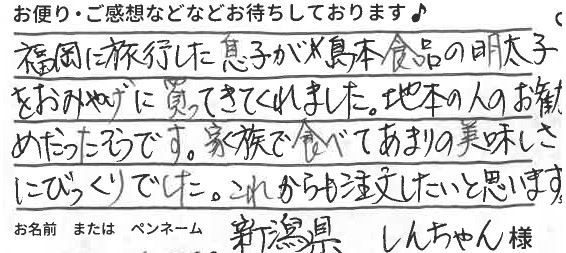 お便り・ご感想などなどお待ちしております♪
福岡に旅行した息子がやま島本食品の明太子
をおみやげに買ってきてくれました。地本の人のお勧
めだったそうです。家族で食べてあまりの美味しさ
にびっくりでした。これからも注文したいと思います。
お名前 または ペンネーム 新潟県 しんちゃん様